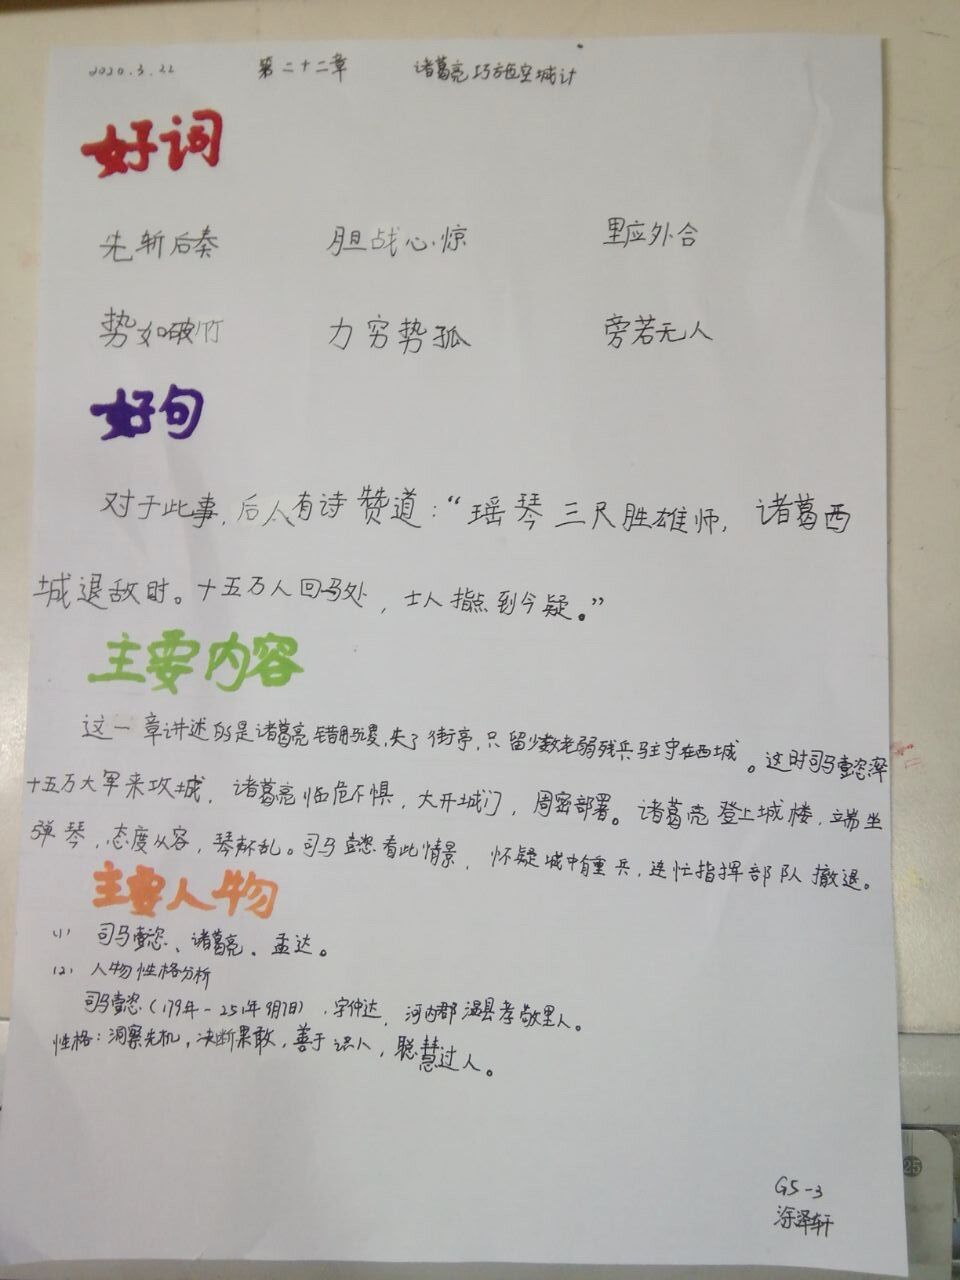 2020.3.22 第二十二章 诸葛亮巧施空城计
好词
先斩后奏 胆战心惊 里应外合
势如破竹 力穷势孤 旁若无人
好句
对于此事,后人有诗赞道:“瑶琴三尺胜雄师,诸葛西
城退敌时。十五万人回马处,士人指点到今疑。”
主要内容
这一章讲述的是诸葛亮错用马谡,失了街亭,只留少数老弱残兵马主守在西城。这时司马懿率
十五万大军来攻城,诸葛亮临危不惧,大开城门,周密部署。诸葛亮登上城楼,端坐
弹琴,态度从容,琴声不乱。司马懿看此情景,怀疑城中有重兵,连忙指挥部队撤退。
主要人物
(1) 司马懿、诸葛亮、孟达。
(2) 人物性格分析
司马懿(179年-251年9月7日),字仲达,河内郡温县孝敬里人。
性格:洞察先机,决断果敢,善于识人,聪慧过人。
G5-3
涂泽轩